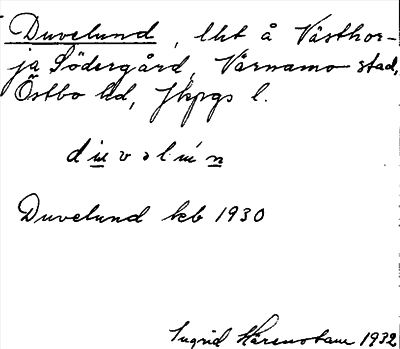 Duvelund, lht å Västhor-
ja Södergård, Värnamo stad,
Östbo hd, Jkpgs l.
Duvelund kb 1930
Ingrid 1932